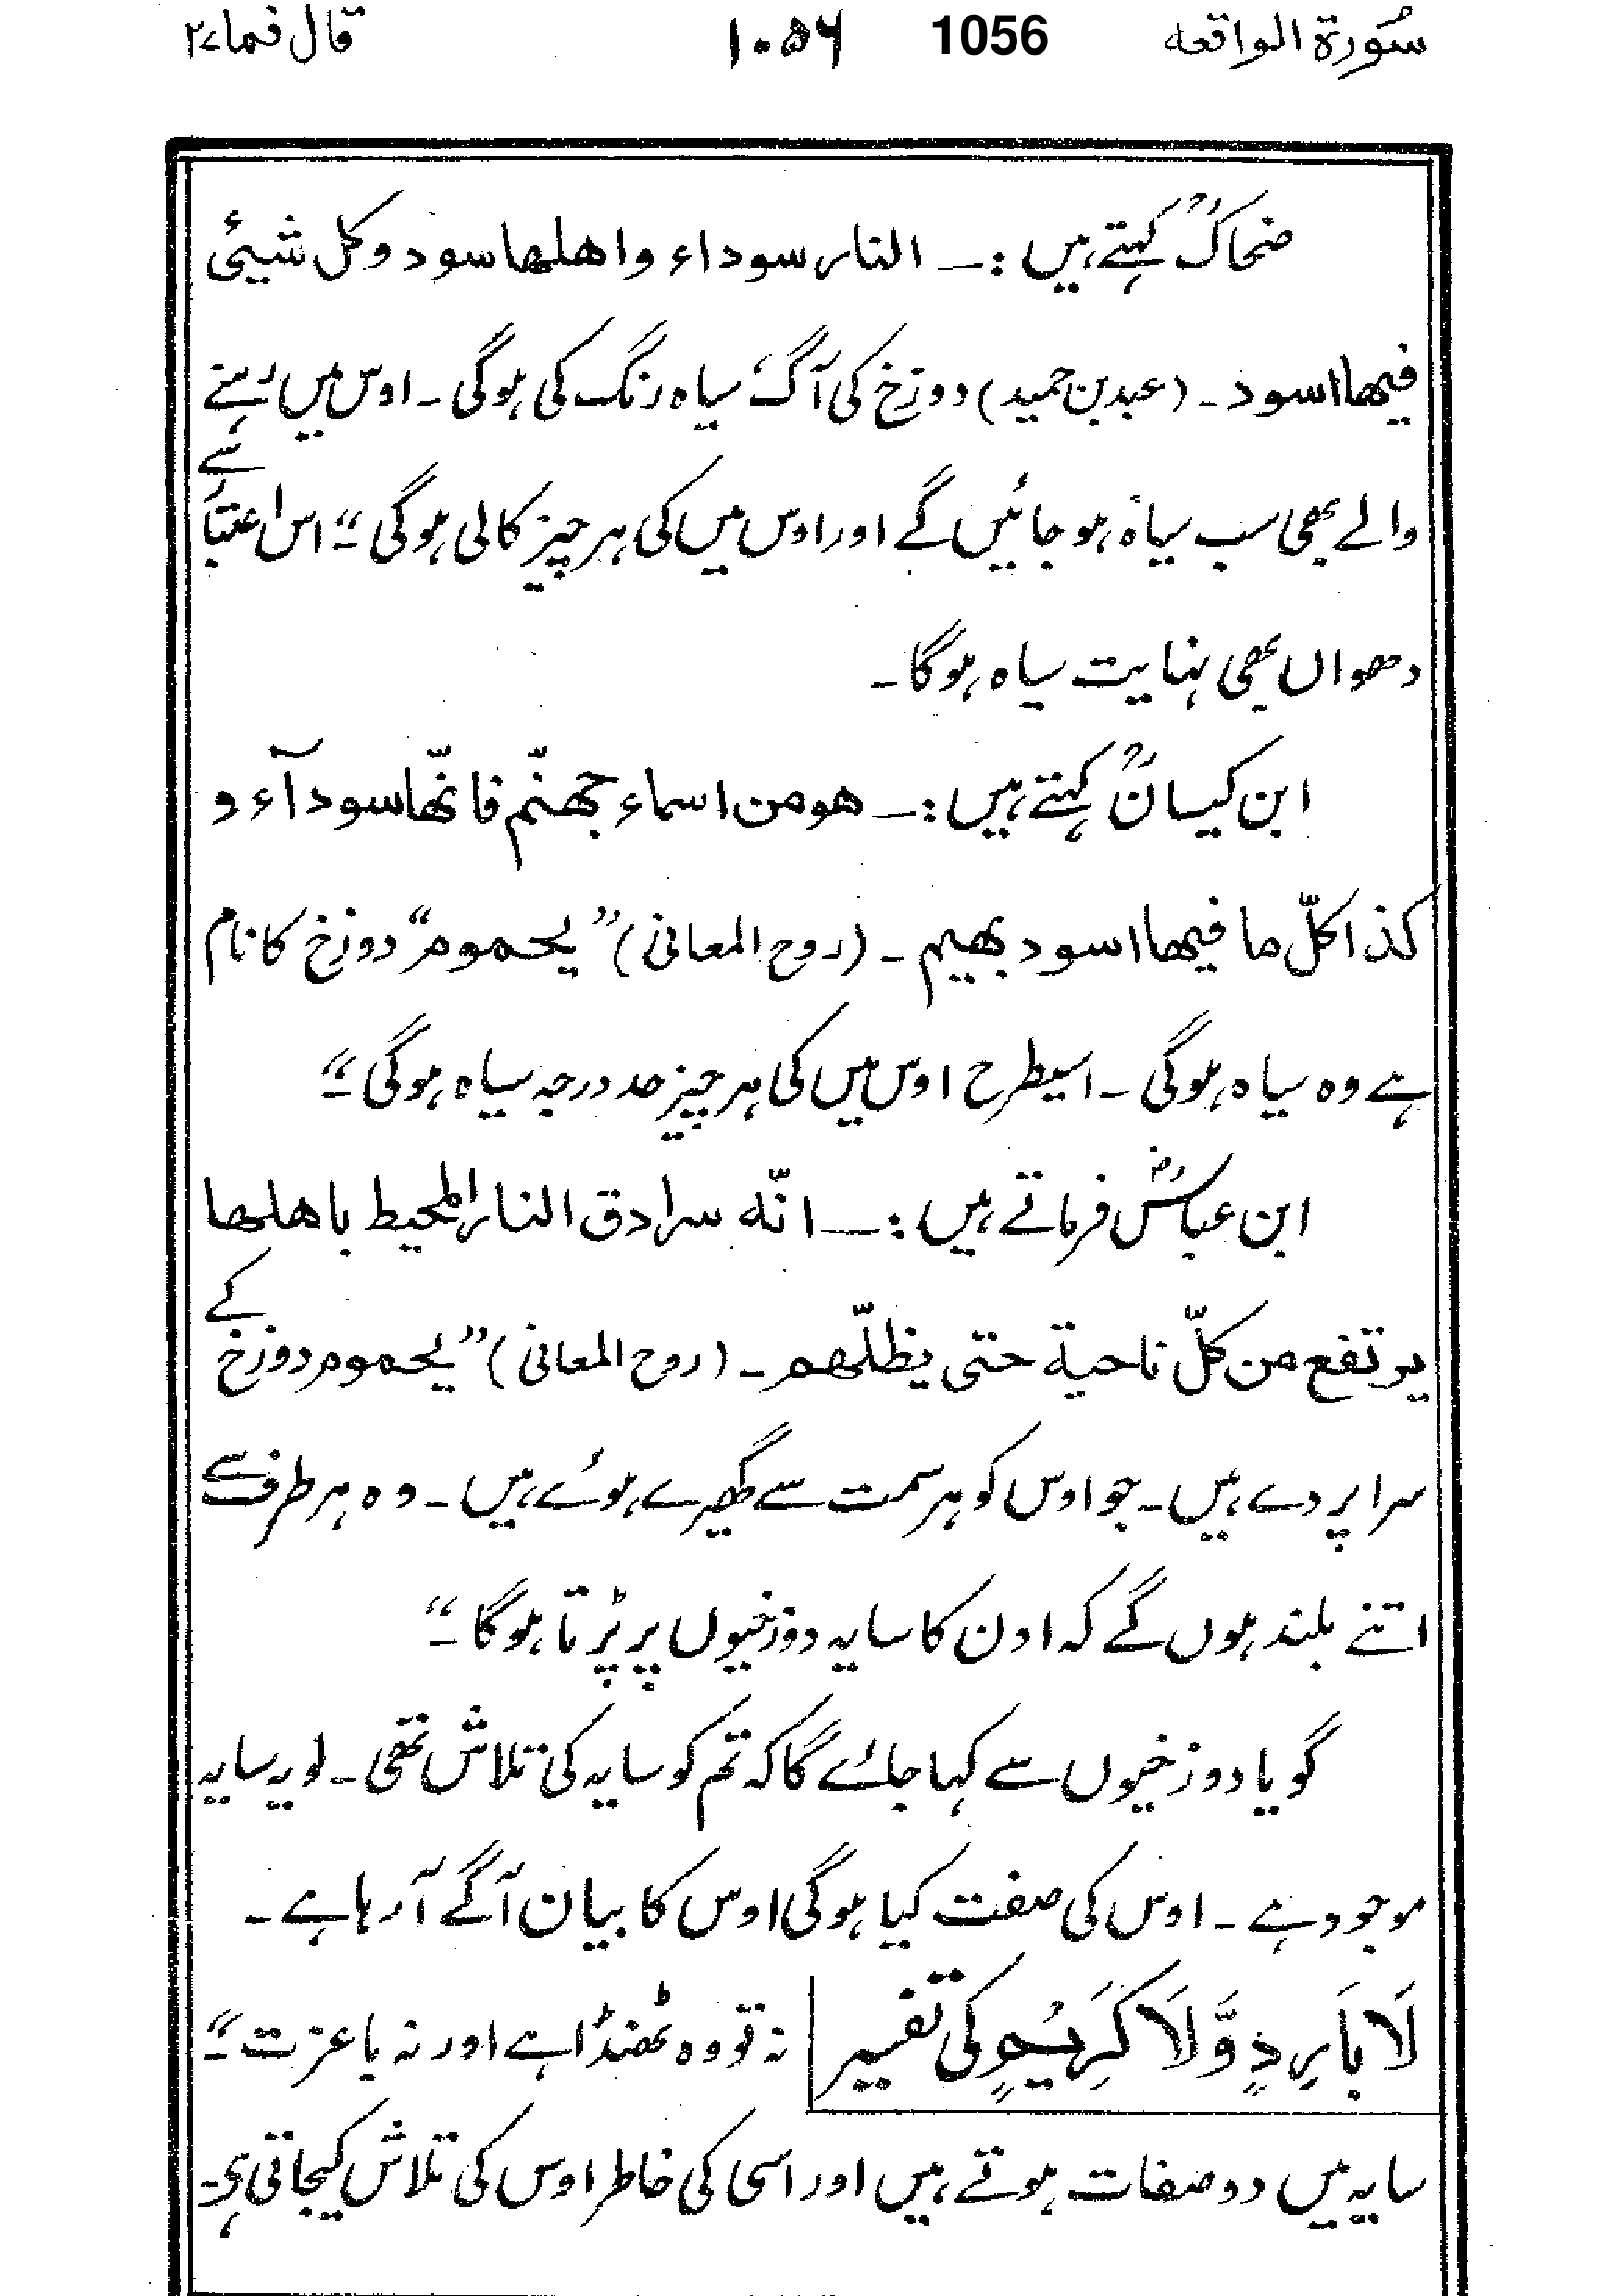 سُورة الواقعه 1056 ۱۰۵۶ قال فما ۲۷
ضحاکؒ کہتے ہیں :۔ النار سوداء واهلها سود وکل شیئ
فیھا اسود۔ (عبد بن حمید) دوزخ کی آگ سیاہ رنگ کی ہوگی۔ اوس میں رہنے
والے بھی سب سیاہ ہو جائیں گے اور اوس میں کی ہر چیز کالی ہوگی ۔“ اس اعتبار سے
دھواں بھی نہایت سیاہ ہوگا۔
ابن کیسانؒ کہتے ہیں :۔ ھو من اسماء جھنّم فانّھا سود آء و
کذا کلّ ما فیھا اسود بھیم۔ (روح المعانی) ”یحموم“ دوزخ کا نام
ہے وہ سیاہ ہوگی۔ اسیطرح اوس میں کی ہر چیز حد درجہ سیاہ ہوگی ۔“
ابن عباسؓ فرماتے ہیں :۔ انّه سرادق النار المحیط باھلھا
یرتفع من کلّ ناحیة حتی یظلّھم۔ (روح المعانی) ”یحموم دوزخ کے
سرا پردے ہیں۔ جو اوس کو ہر سمت سے گھیرے ہوئے ہیں۔ وہ ہر طرف سے
اتنے بلند ہوں گے کہ اون کا سایہ دوزخیوں پر پڑتا ہوگا ۔“
گویا دوزخیوں سے کہا جائے گا کہ تم کو سایہ کی تلاش تھی۔ لو یہ سایہ
موجود ہے۔ اوس کی صفت کیا ہوگی اوس کا بیان آگے آ رہا ہے۔
لَا بَارِدٍ وَّلَا کَرِیْمٍ کی تفسیر نہ تو وہ ٹھنڈا ہے اور نہ با عزت ۔“
سایہ میں دو صفات ہوتے ہیں اور اسی کی خاطر اوس کی تلاش کیجاتی ہی۔